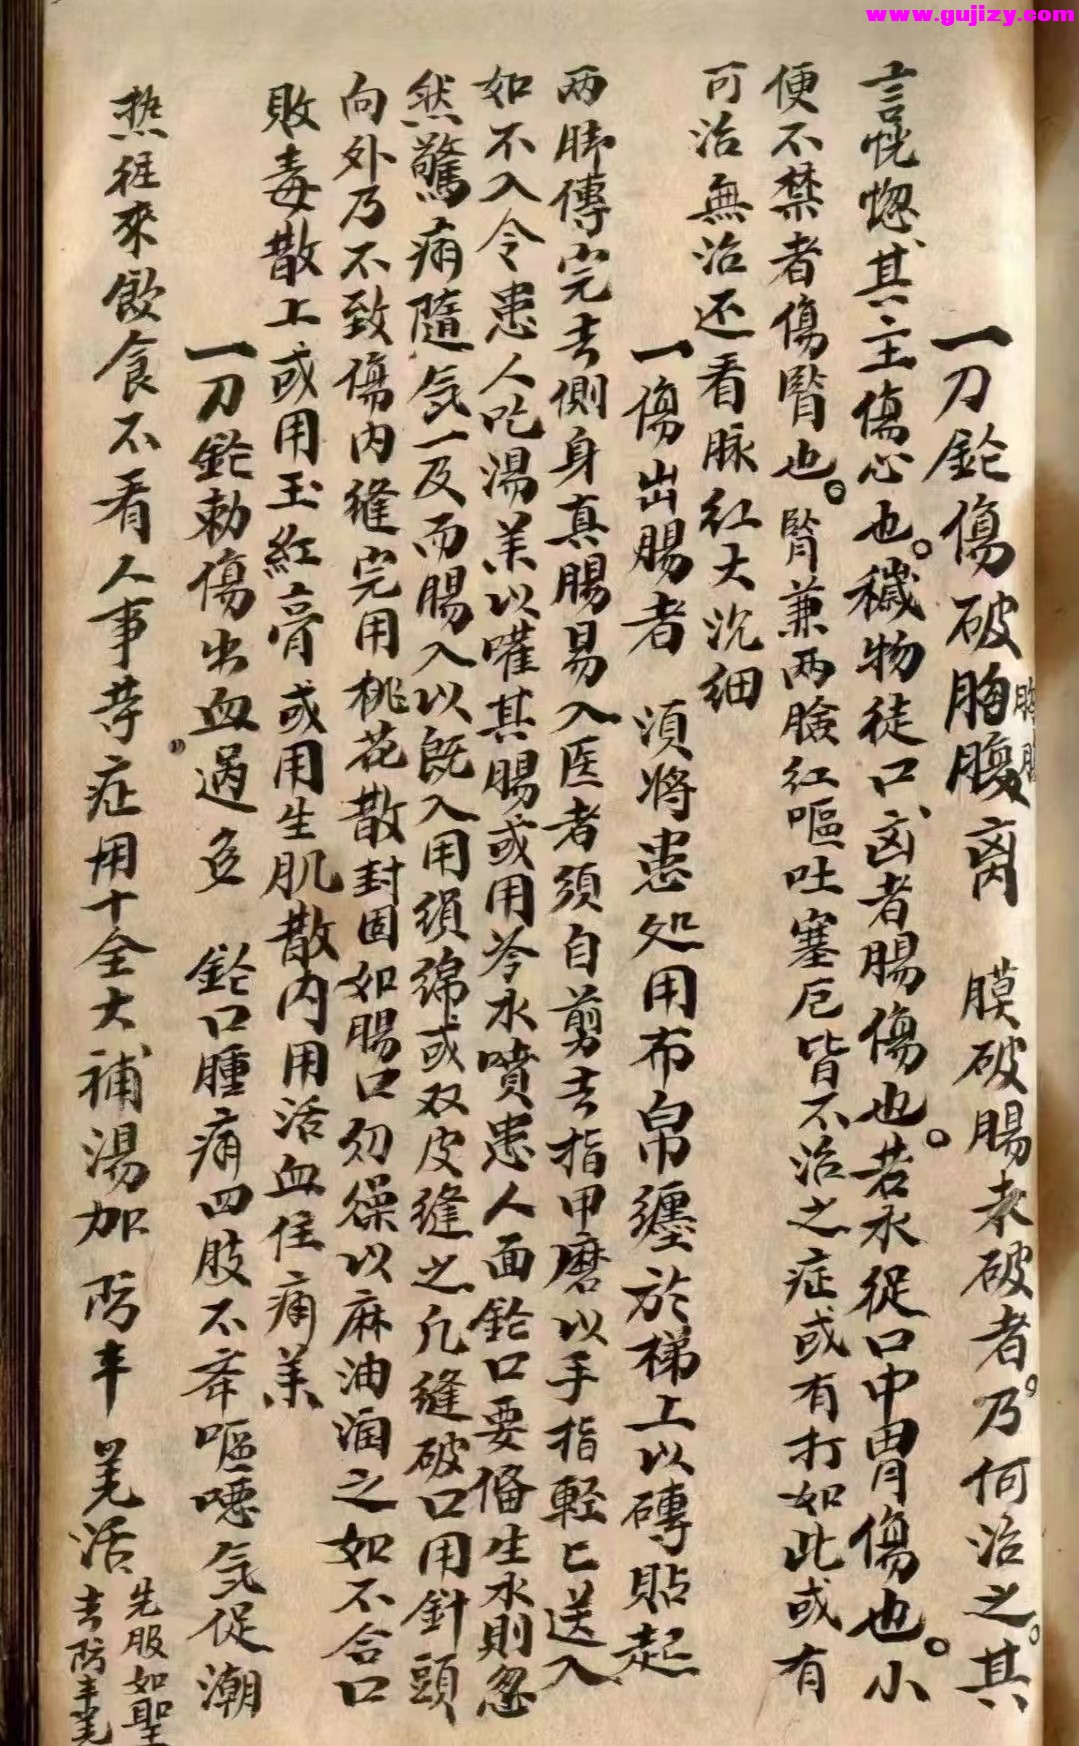 www.gujizy.com
一刀鈊傷破胸腹离 膜破腸未破者乃何治之其
言恍惚其主傷心也穢物徒口出者腸傷也若水從口中出胃傷也小
便不禁者傷腎也腎兼兩臉紅嘔吐塞厄皆不治之症或有打如此或有
可治無治还看脉紅大沉細
一傷出腸者 須将患处用布帛纏於梯上以磚貼起
两脚傳完去側身真腸易入医者须自剪去指甲磨以手指輕匕送入
如不入令患人吃湯羙以嚾其腸或用冷水噴患人面鈊口要俻生水則忽
然驚痛隨気一及而腸入以既入用须綿或双皮縫之凢縫破口用針頭
向外乃不致傷内縫完用桃花散封固如腸口勿燥以麻油润之如不合口
敗毒散上或用玉紅膏或用生肌散内用活血住痛羙
一刀鈊勅傷出血過多 鈊口腫痛四肢不夲嘔噁気促潮
热往來飲食不看人事䓁症用十全大補湯加 防丰 羌活
先服如聖
去防丰羌